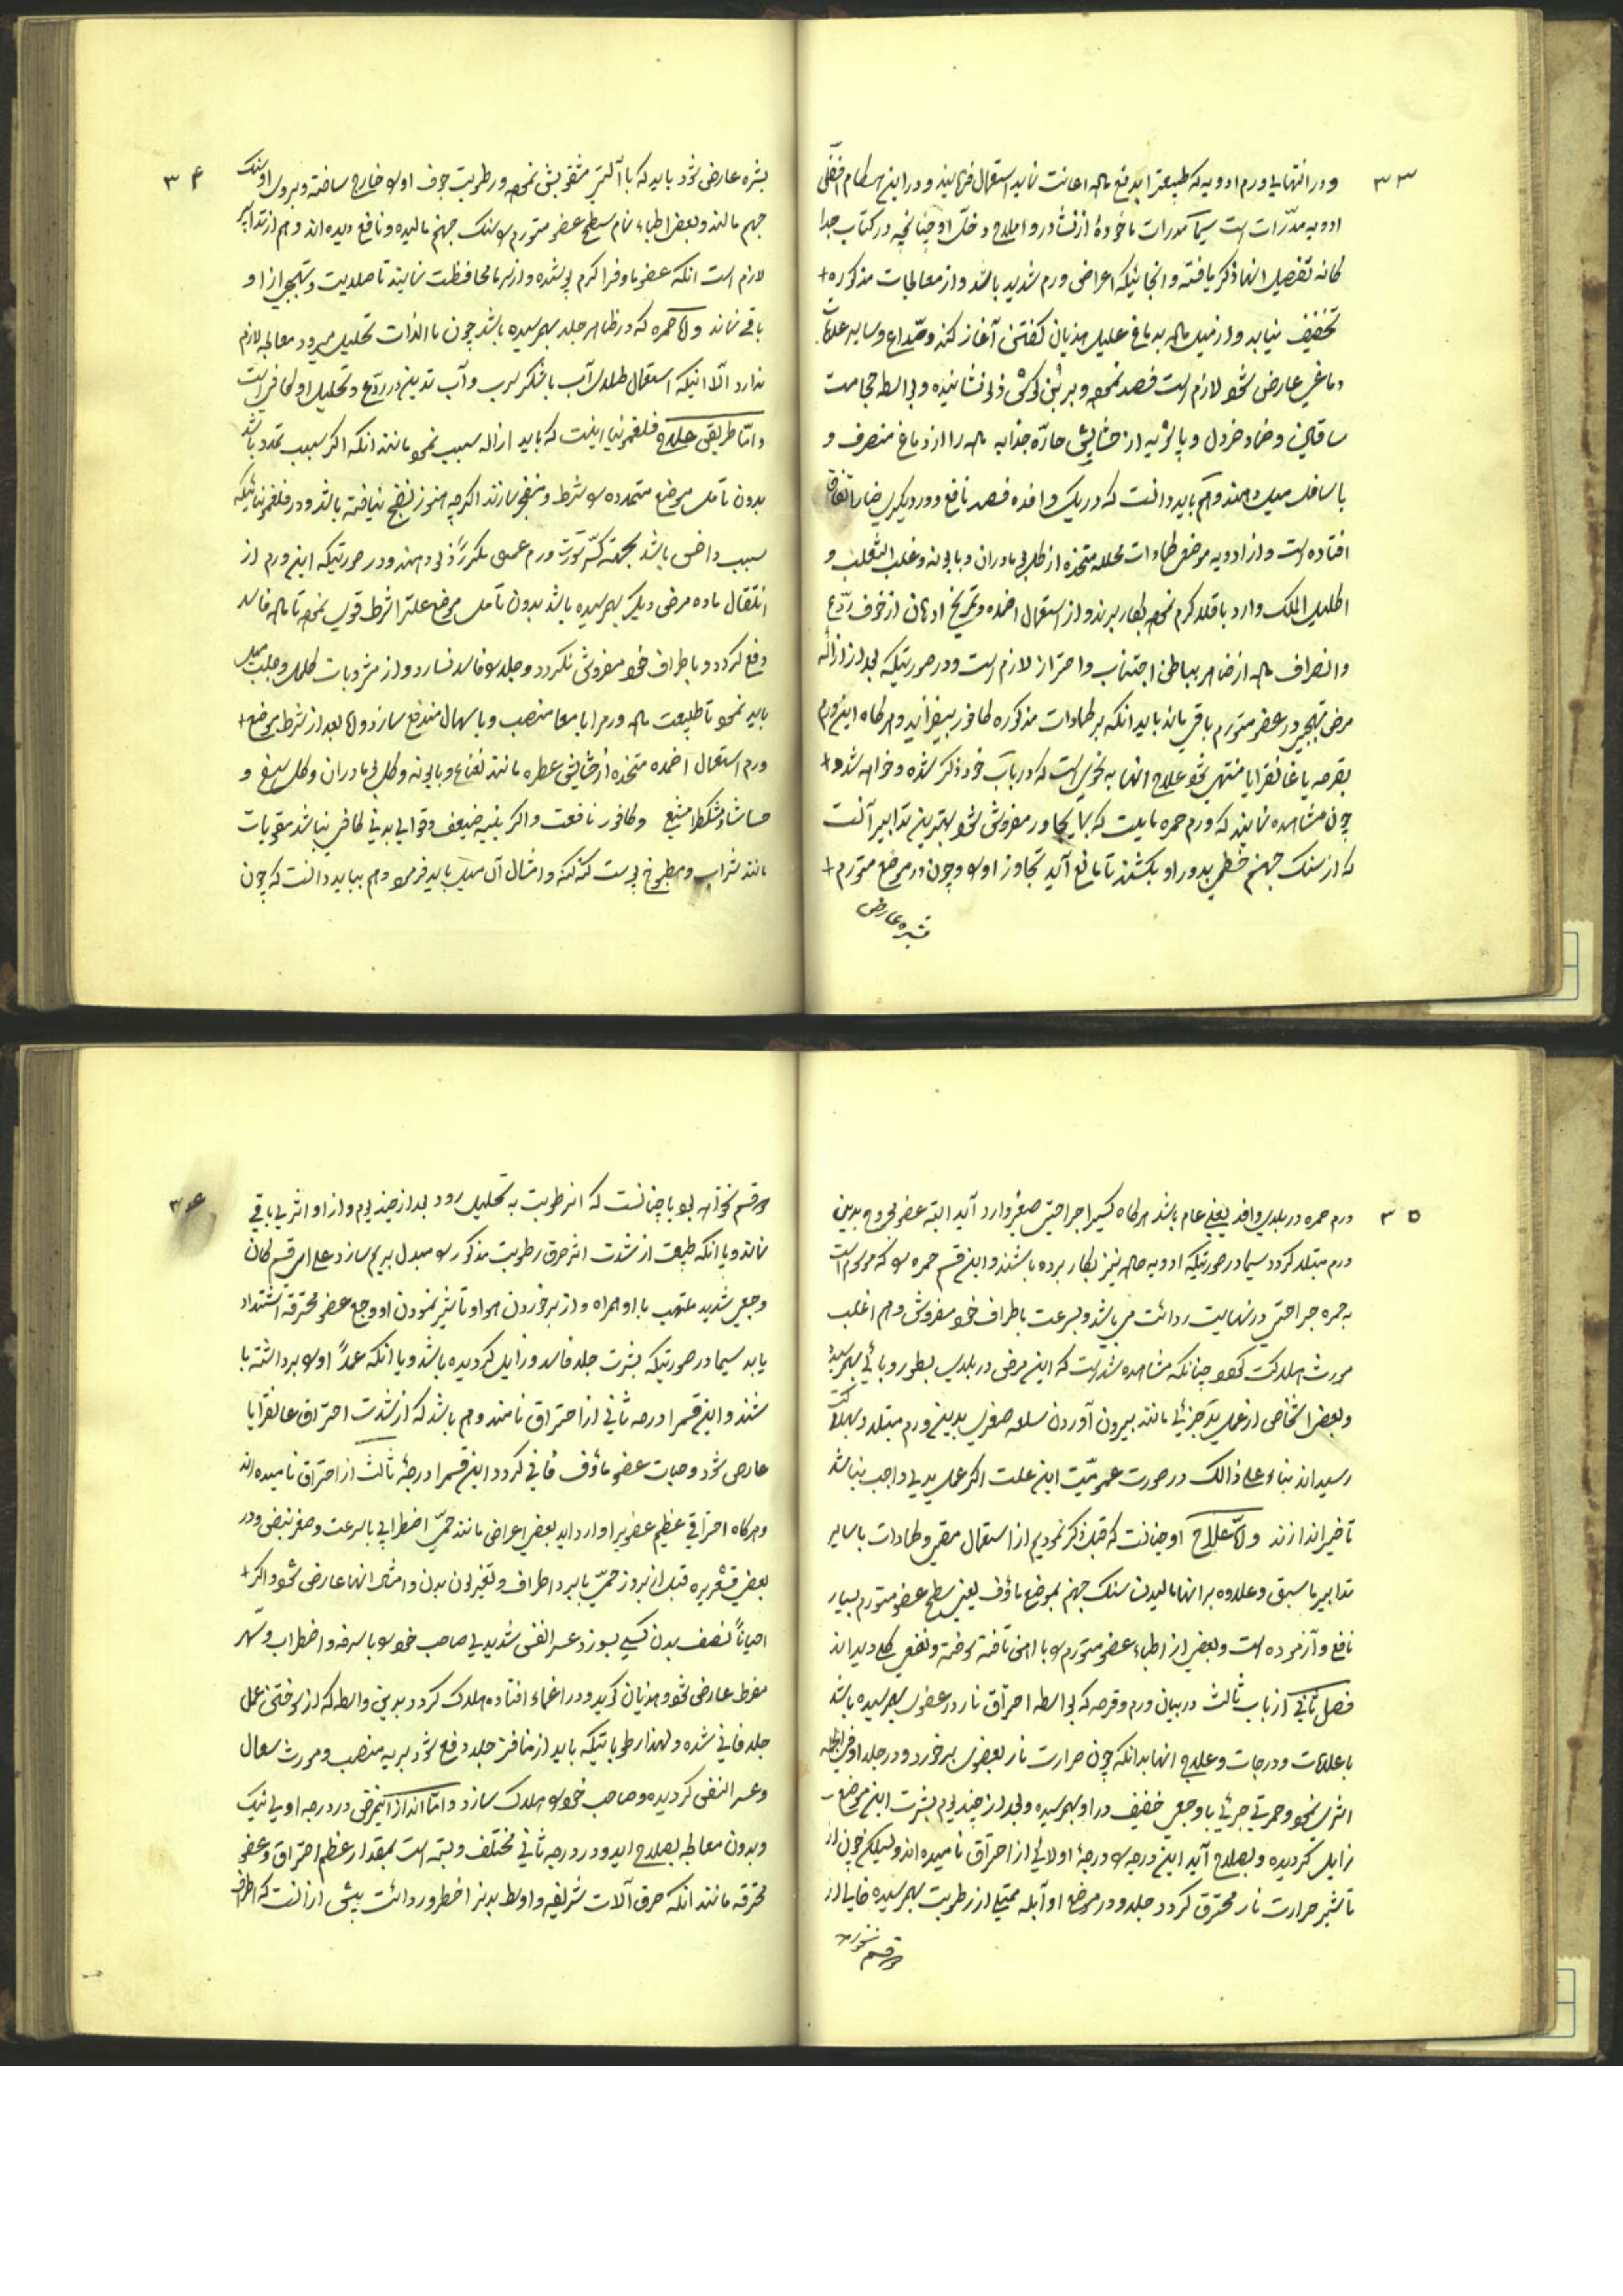 ۳۳
و در انتهای ورم ادویه که طبیعترا بدفع ماده اعانت نماید استعمال فرمایند و در این هنکام افضل
ادویه مدرّات است سیما مدرات ماخوذهٔ از نشادر و املاح و خلّ او چنانچه در کتاب جدا
کانه تفصیل انها ذکر یافته و انجائیکه اعراض ورم شدید باشد و از معالجات مذکوره +
تخفیف نیابد و از میل ماده بدماغ علیل هذیان کفتن آغاز کند و صداع و سایر علامات
دماغی عارض شود لازم است فصد نموده و بر بُن کوش ذلو نشانیده و بواسطه حجامت
ساقین و ضماد خردل و پاشویه از حشایش حارّه جذابه ماده را از دماغ منصرف و
باسافل میل دهند و هم باید دانست که در یک وافده فصد نافع و در دیکری ضار اتفاق
افتاده است و از ادویه موضعی ضمادات محلله متخذه از کل بومادران و بابونه و عنب الثعلب و
اکلیل الملک و ارد باقلا کرم نموده بکار برند و از استعمال اضمده و تمریخ ادهان از خوف ردع
و انصراف ماده از ظاهر بباطن اجتناب و احتراز لازم است و در صورتیکه بعد از ازاله
مرض تهیجی در عضو متورم باقی ماند باید انکه بر ضمادات مذکوره کافور بیفزایند و هرکاه این ورم
بقرحه یا غانغرایا منتهی شود علاج انها به نحوی است که در باب خود ذکر شده و خواهد شد و +
چون مشاهده نمایند که ورم حمره مایلست که بما یجاور مفروش شود بهترین تدابیر آنست
که از سنک جهنم خطی بدور او بکشند تا مانع آید تجاوز او را و چون در موضع متورم +
بثره عارض
۳۴
بثره عارض شود باید که با آلتی مثقوبش نموده و رطوبت جوف او را خارج ساخته و بروی او سنک
جهنم مالند و بعض اطباء تمام سطح عضو متورم را سنک جهنم مالیده و نافع دیده اند و هم از تدابیر
لازم است انکه عضو ماوف را کرم پوشیده و از سرما محافظت نمایند تا صلابت و تهیجی از او
باقی نماند و امّا حمره که در ظاهر جلد بهم رسیده باشد چون بالذات تحلیل میرود معالجه لازم
ندارد الّا انیکه استعمال طلای آب با شکر سرب و آب تدبیری در ردع و تحلیل او کافی است
و امّا طریق علاج فلغمونیا اینست که باید ازاله سبب نمود مانند انکه اکر سبب تمدد باشد
بدون تامل موضع متمدده را شرط و منفجر سازند اکرچه هنوز نضج نیافته باشد و در فلغمونیائیکه
سبب داخلی باشد بجهته کسر سَورت ورم عملی مکرراً ذلو دهند و در صورتیکه این ورم از
انتقال ماده مرض دیکر بهم رسیده باشد بدون تامل موضع علترا شرط قوی نموده تا ماده فاسد
دفع کردد و باطراف خود مفروش نکردد و جلد را فاسد نسازد و از مشروبات کلمل و جلب میل
باید نمود تا طبیعت ماده ورم را بامعا منصب و باسهال مندفع سازد و امّا بعد از شرط موضع +
ورم استعمال اضمده متخذه از حشایش عطره مانند نعناع و بابونه و کل بومادران و کل سیغ و
حاشا و مشکطرامشیع و کافور نافعست و اکر بنیه ضعیف و قوای بدنی کافی نباشد مقویات
مانند شراب و مطبوخ پوست کنه کنه و امثال آن میل باید فرمود و هم بباید دانست که چون
۳۵
ورم حمره در بلدی وافد یعنی عام باشد هرکاه کسیرا جراحتی صغیر وارد آید البته عضو مجروح بدین
ورم مبتلا کردد سیما در صورتیکه ادویه حاده نیز بکار برده باشند و این قسم حمره را که موسوم است
به حمره جراحتی در نهایت ردائت می باشد و بسرعت باطراف خود مفروش و هم اغلب
مورث هلاکت کردد چنانکه مشاهده شده است که این مرض در بلدی بطور وبائی بهم رسیده
و بعض اشخاص از عمل ید جزئی مانند بیرون آوردن سلعه صغیری بدین ورم مبتلا و بهلاکت
رسیده اند بناء علی ذالک در صورت عمومیّت این علت اکر عمل یدی واجب نباشد
تاخیر اندازند و امّا علاج او چنانست که قبل ذکر نمودیم از استعمال مقیئ و ضمادات با سایر
تدابیر ما سبق و علاوه بر انها مالیدن سنک جهنم بموضع ماؤف یعنی سطح عضو متورم بسیار
نافع و آزموده است و بعضی از اطباء عضو متورم را با اهن تافته سوخته و نفعی کلی دیده اند
فصل ثانی از باب ثالث در بیان ورم و قرحه که بواسطه احتراق نار در عضوی بهم رسیده باشد
با علامات و درجات و علاج انها بدانکه چون حرارت نار بعضوی برخورد و در جلد او فی الجمله
اثر نموده و حمرتی جزئی با وجعی خفیف در او بهم رسیده و بعد از چند یوم بشرت این موضع –
زایل کردیده و بصلاح آید این درجه را درجهٔ اولای از احتراق نامیده اند ولیکن چون از
تاثیر حرارت نار محترق کردد جلد و در موضع او آبله ممتلی از رطوبت بهم رسیده خالی از
دو قسم نخواهد
۳۶
دو قسم نخواهد بود یا چنانست که ان رطوبت به تحلیل رود بعد از چند یوم و از او اثری باقی
نماند و یا انکه طبیعت از شدت اثر حرق رطوبت مذکور را مبدل بریم سازد علی ای قسم کان
وجعی شدید ملتهب با او همراه و از برخوردن هوا و تاثیر نمودن او وجع عضو محترقه اشتداد
یابد سیما در صورتیکه بشرت جلد فاسد و زایل کردیده باشد و یا انکه عمداً او را برداشته با
شند و این قسمرا درجه ثانی از احتراق نامند و هم باشد که از شدت احتراق غانغرایا
عارض شود و حیات عضو ماؤف فانی کردد این قسمرا درجهٔ ثالث از احتراق نامیده اند
و هرکاه احتراقی عظیم عضویرا وارد اید بعض اعراض مانند حمیّ اضطرابی با سرعت و صغر نبض و در
بعض قشعریره قبل از بروز حمیّ با برد اطراف و تغیر لون بدن و امثال انها عارض شود و اکر +
احیاناً نصف بدن کسی بسوزد عسر النفس شدیدی صاحب خود را با سرفه و اضطراب و سهر
مفرط عارض شود و هذیان کوید و در اغماء افتاده هلاک کردد بدین واسطه که از سوختن عمل
جلد فانی شده و لهذا رطوباتیکه باید از منافذ جلد دفع شود بریه منصب و مورث سعال
و عسر النفس کردیده و صاحب خود را هلاک سازد و امّا انذار اینمرض در درجه اولی نیک
و بدون معالجه بصلاح اید و در درجه ثانی مختلف و بسته است بمقدار عظم احتراق و عضو
محترقه مانند انکه حرق آلات شریفه و اوسط بدن اخطر و ردائت بیش از انست که اطراف